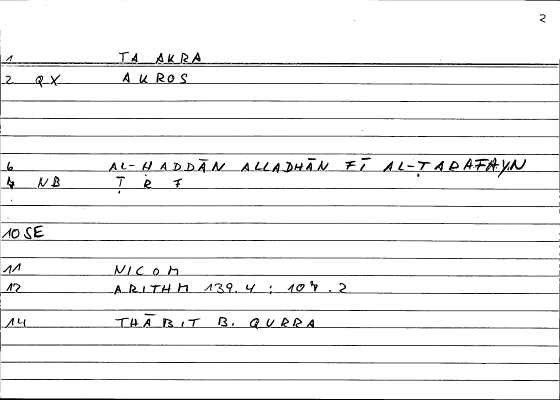 2
1 TA AKRA
2 QX AKROS
6 AL-HADDĀN ALLADHĀN FĪ AL-ṬARAFAYN
NB Ṭ R F
10 SE
11 NICOM
12 ARITHM 139.4 : 107.2
14 THĀBIT B. QURRA